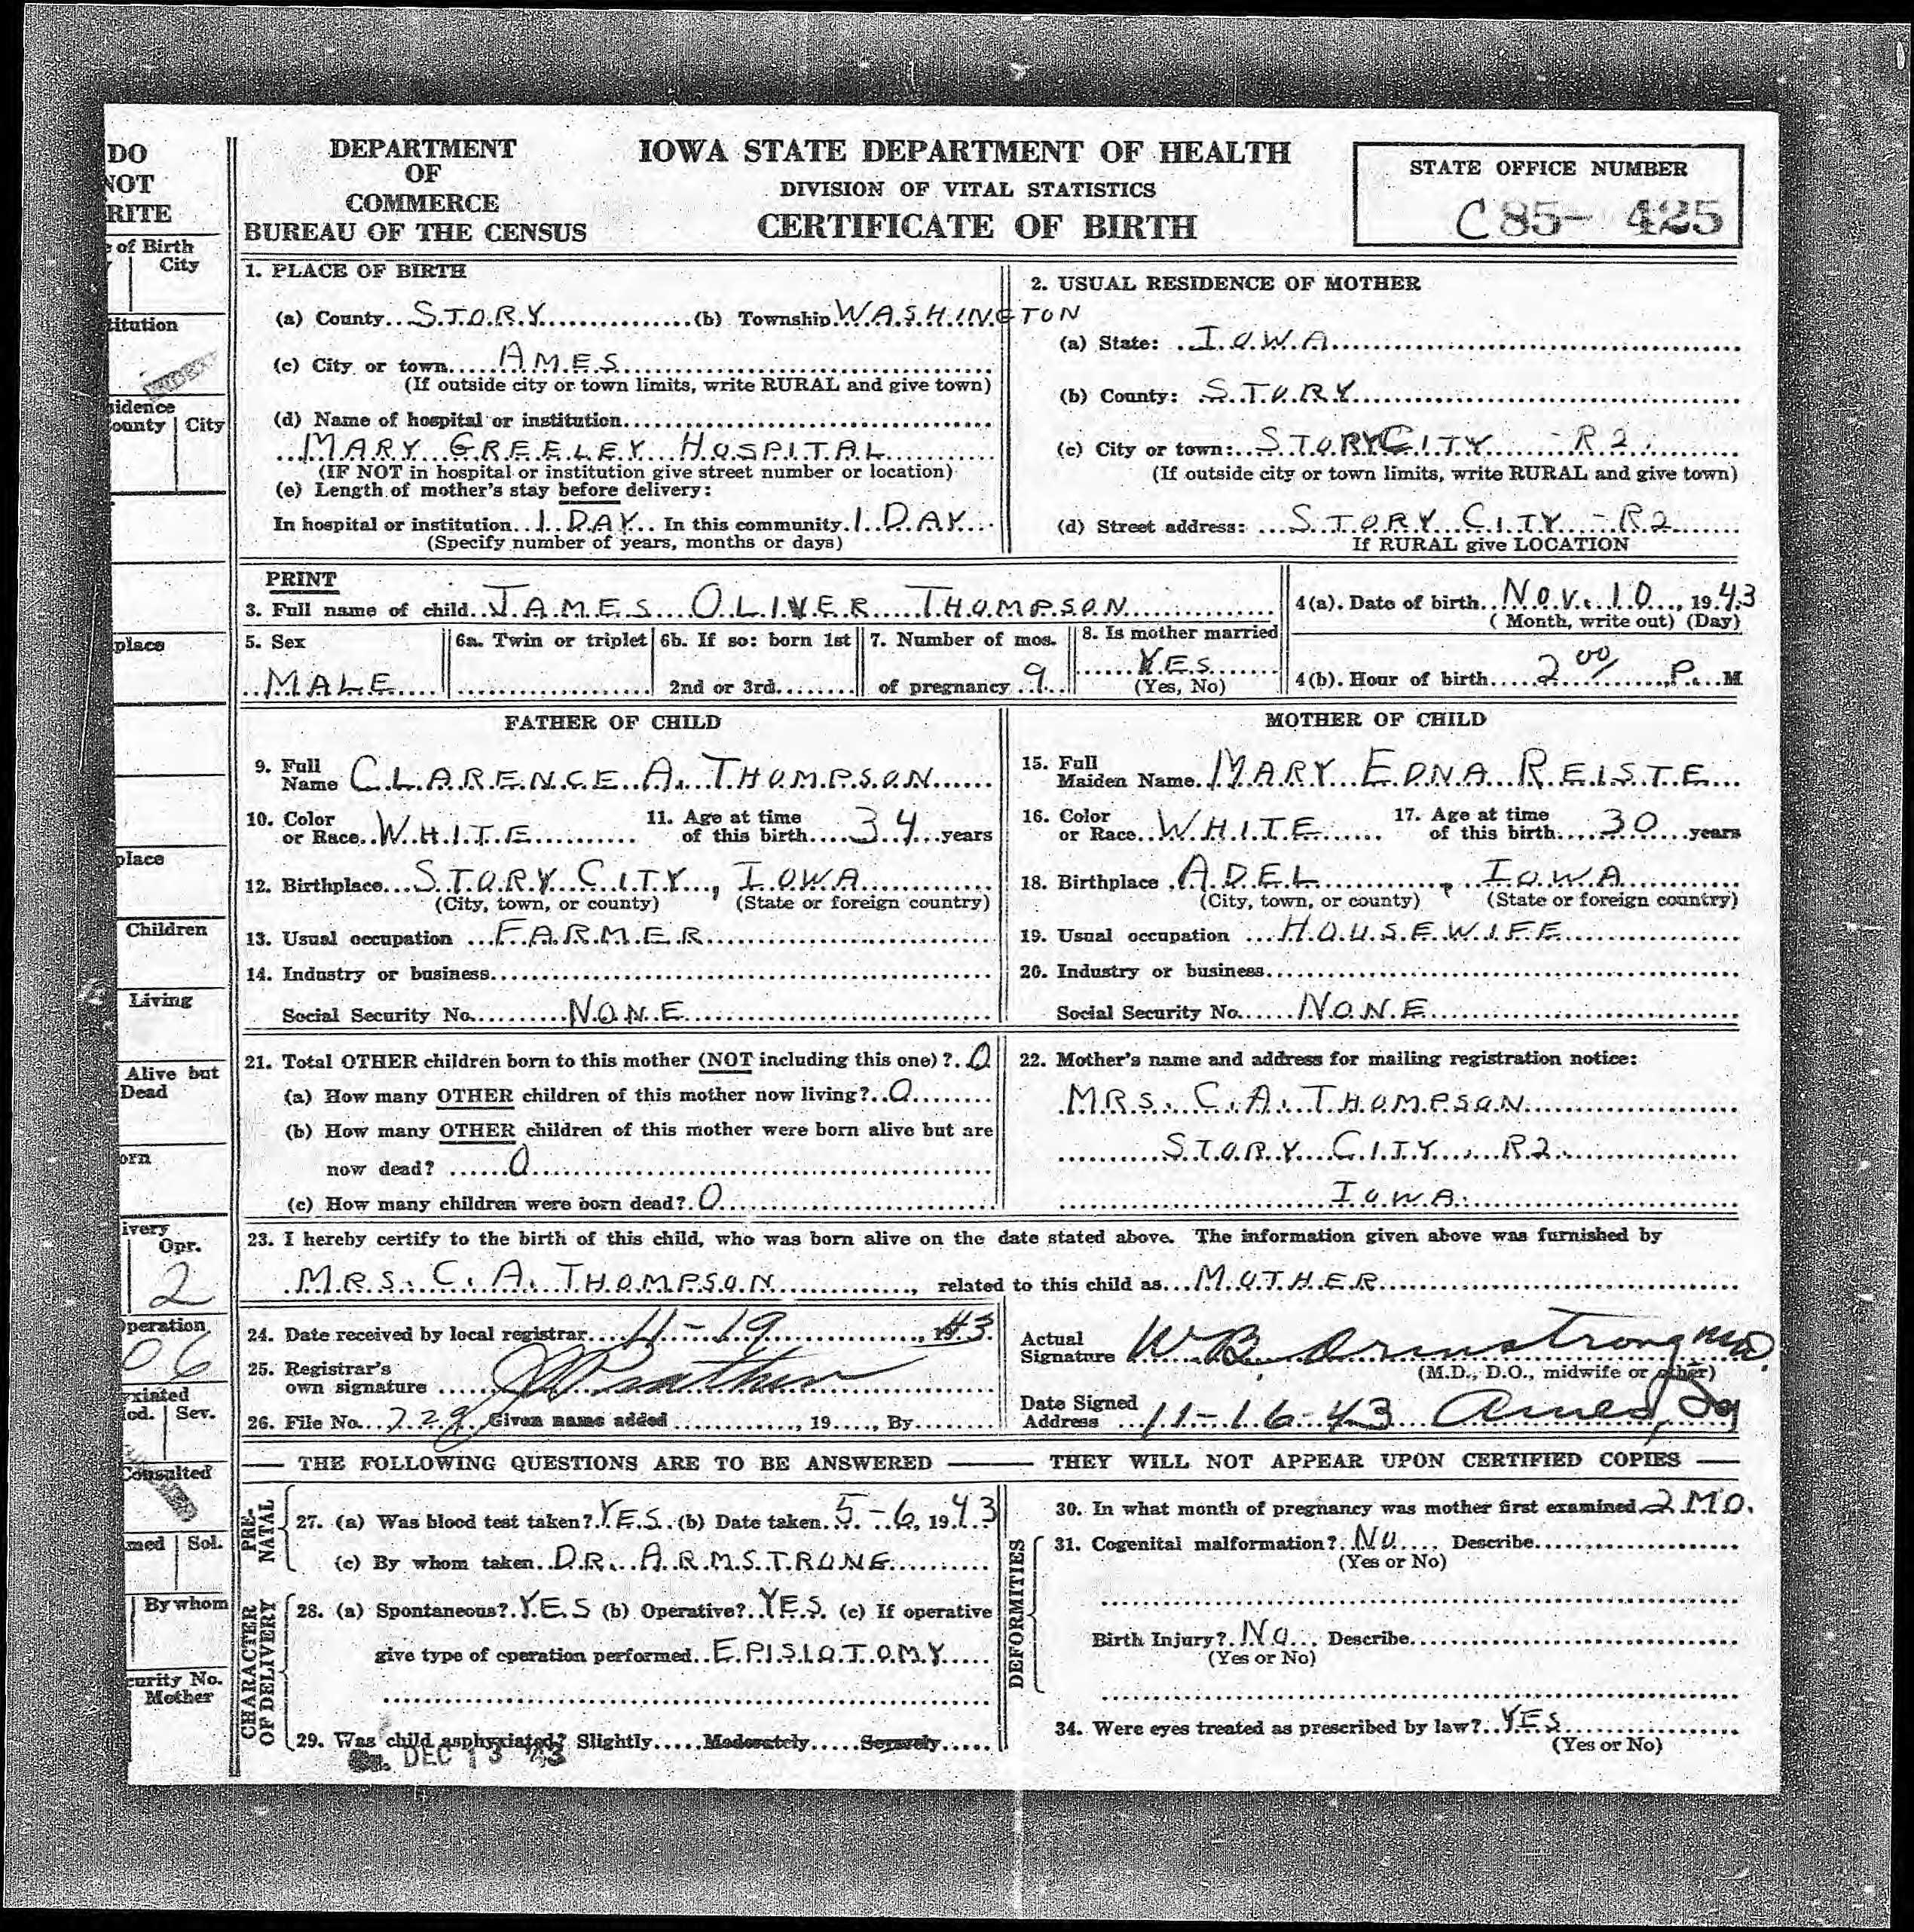 DO
NOT
RITE
of Birth
City
titution
sidence
ounty | City
place
place
Children
Living
Alive but
Dead
orn
ivery
Opr.
2
Operation
06
yxiated
od. | Sev.
Consulted
med | Sol.
By whom
curity No.
Mother
DEPARTMENT
OF
COMMERCE
BUREAU OF THE CENSUS
IOWA STATE DEPARTMENT OF HEALTH
DIVISION OF VITAL STATISTICS
CERTIFICATE OF BIRTH
STATE OFFICE NUMBER
C85- 425
1. PLACE OF BIRTH
(a) County STORY (b) Township WASHINGTON
(c) City or town AMES
(If outside city or town limits, write RURAL and give town)
(d) Name of hospital or institution
MARY GREELEY HOSPITAL
(IF NOT in hospital or institution give street number or location)
(e) Length of mother's stay before delivery:
In hospital or institution 1 DAY In this community 1 DAY
(Specify number of years, months or days)
2. USUAL RESIDENCE OF MOTHER
(a) State: IOWA
(b) County: STORY
(c) City or town: STORY CITY - R2.
(If outside city or town limits, write RURAL and give town)
(d) Street address: STORY CITY - R2
If RURAL give LOCATION
PRINT
3. Full name of child JAMES OLIVER THOMPSON
4(a). Date of birth NOV. 10, 1943
(Month, write out) (Day)
5. Sex
MALE
6a. Twin or triplet
6b. If so: born 1st
2nd or 3rd
7. Number of mos.
of pregnancy 9
8. Is mother married
YES
(Yes, No)
4(b). Hour of birth 2 00 P. M
FATHER OF CHILD
9. Full
Name CLARENCE A. THOMPSON
10. Color
or Race WHITE
11. Age at time
of this birth 34 years
12. Birthplace STORY CITY, IOWA
(City, town, or county) (State or foreign country)
13. Usual occupation FARMER
14. Industry or business
Social Security No. NONE
MOTHER OF CHILD
15. Full
Maiden Name MARY EDNA REISTE
16. Color
or Race WHITE
17. Age at time
of this birth 30 years
18. Birthplace ADEL, IOWA
(City, town, or county) (State or foreign country)
19. Usual occupation HOUSEWIFE
20. Industry or business
Social Security No. NONE
21. Total OTHER children born to this mother (NOT including this one)? 0
(a) How many OTHER children of this mother now living? 0
(b) How many OTHER children of this mother were born alive but are
now dead? 0
(c) How many children were born dead? 0
22. Mother's name and address for mailing registration notice:
MRS. C. A. THOMPSON
STORY CITY, R2.
IOWA.
23. I hereby certify to the birth of this child, who was born alive on the date stated above. The information given above was furnished by
MRS. C. A. THOMPSON, related to this child as MOTHER
24. Date received by local registrar 11-19, 1943
25. Registrar's
own signature Prather
26. File No. 229 Given name added , 19 , By
Actual
Signature W B Armstrong MD.
(M.D., D.O., midwife or other)
Date Signed
Address 11-16-43 Ames, Ia
THE FOLLOWING QUESTIONS ARE TO BE ANSWERED — THEY WILL NOT APPEAR UPON CERTIFIED COPIES
PRE-
NATAL
27. (a) Was blood test taken? YES (b) Date taken 5-6, 1943
(c) By whom taken DR. ARMSTRONG
CHARACTER
OF DELIVERY
28. (a) Spontaneous? YES (b) Operative? YES. (c) If operative
give type of operation performed EPISIOTOMY
29. Was child asphyxiated? Slightly Moderately Severely
DEC 13 43
30. In what month of pregnancy was mother first examined 2 MO.
DEFORMITIES
31. Cogenital malformation? NO Describe
(Yes or No)
Birth Injury? NO Describe
(Yes or No)
34. Were eyes treated as prescribed by law? YES
(Yes or No)